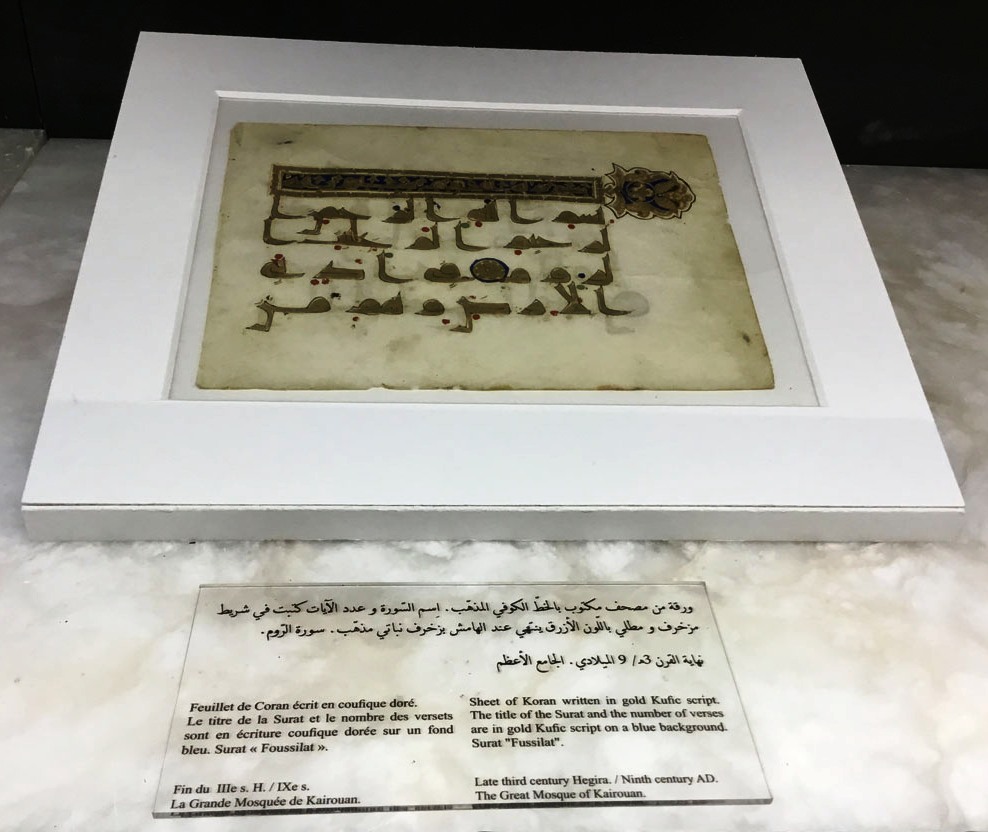 بسم الله الرحمن
الرحيم الم غلبت
الروم في ادنى
الارض وهم من
ورقة من مصحف مكتوب بالخطّ الكوفي المذهّب. اِسم السّورة و عدد الآيات كتبت في شريط
مزخرف و مطلي باللّون الأزرق ينتهي عند الهامش بزخرف نباتي مذهّب. سورة الرّوم.
نهاية القرن 3هـ/ 9 الميلادي. الجامع الأعظم
Feuillet de Coran écrit en coufique doré.
Le titre de la Surat et le nombre des versets
sont en écriture coufique dorée sur un fond
bleu. Surat « Foussilat ».
Fin du IIIe s. H. / IXe s.
La Grande Mosquée de Kairouan.
Sheet of Koran written in gold Kufic script.
The title of the Surat and the number of verses
are in gold Kufic script on a blue background.
Surat "Fussilat".
Late third century Hegira. / Ninth century AD.
The Great Mosque of Kairouan.